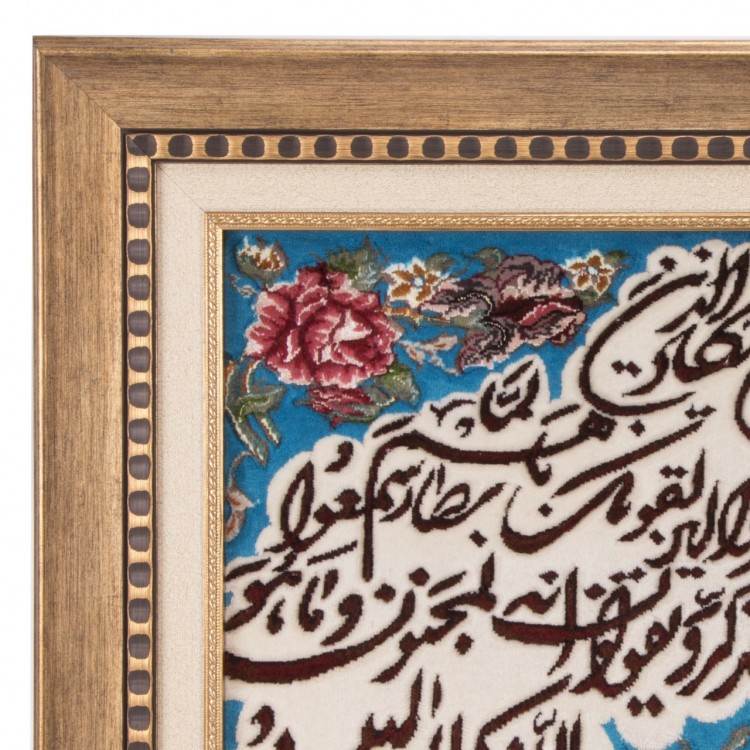 يكاد الذين
ليزلقونك بابصارهم لما سمعوا
كر و يقولون انه لمجنون و ما هو